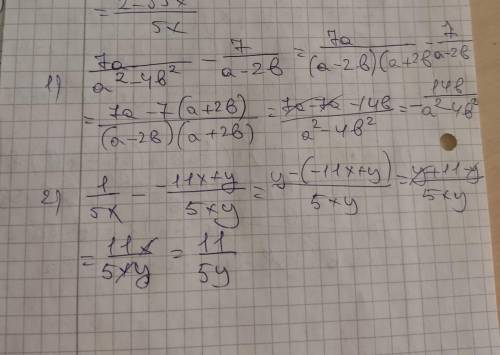 = (2-35x)/(5x)
1) 7a/(a²-4b²) - 7/(a-2b) = 7a/((a-2b)(a+2b) - 7/(a-2b)
= (7a-7(a+2b))/((a-2b)(a+2b)) = (7a-7a-14b)/(a²-4b²) = -14b/(a²-4b²)
2) 1/(5x) - (-11x+y)/(5xy) = (y-(-11x+y))/(5xy) = (y+11-y)/(5xy)
= 11x/(5xy) = 11/(5y)